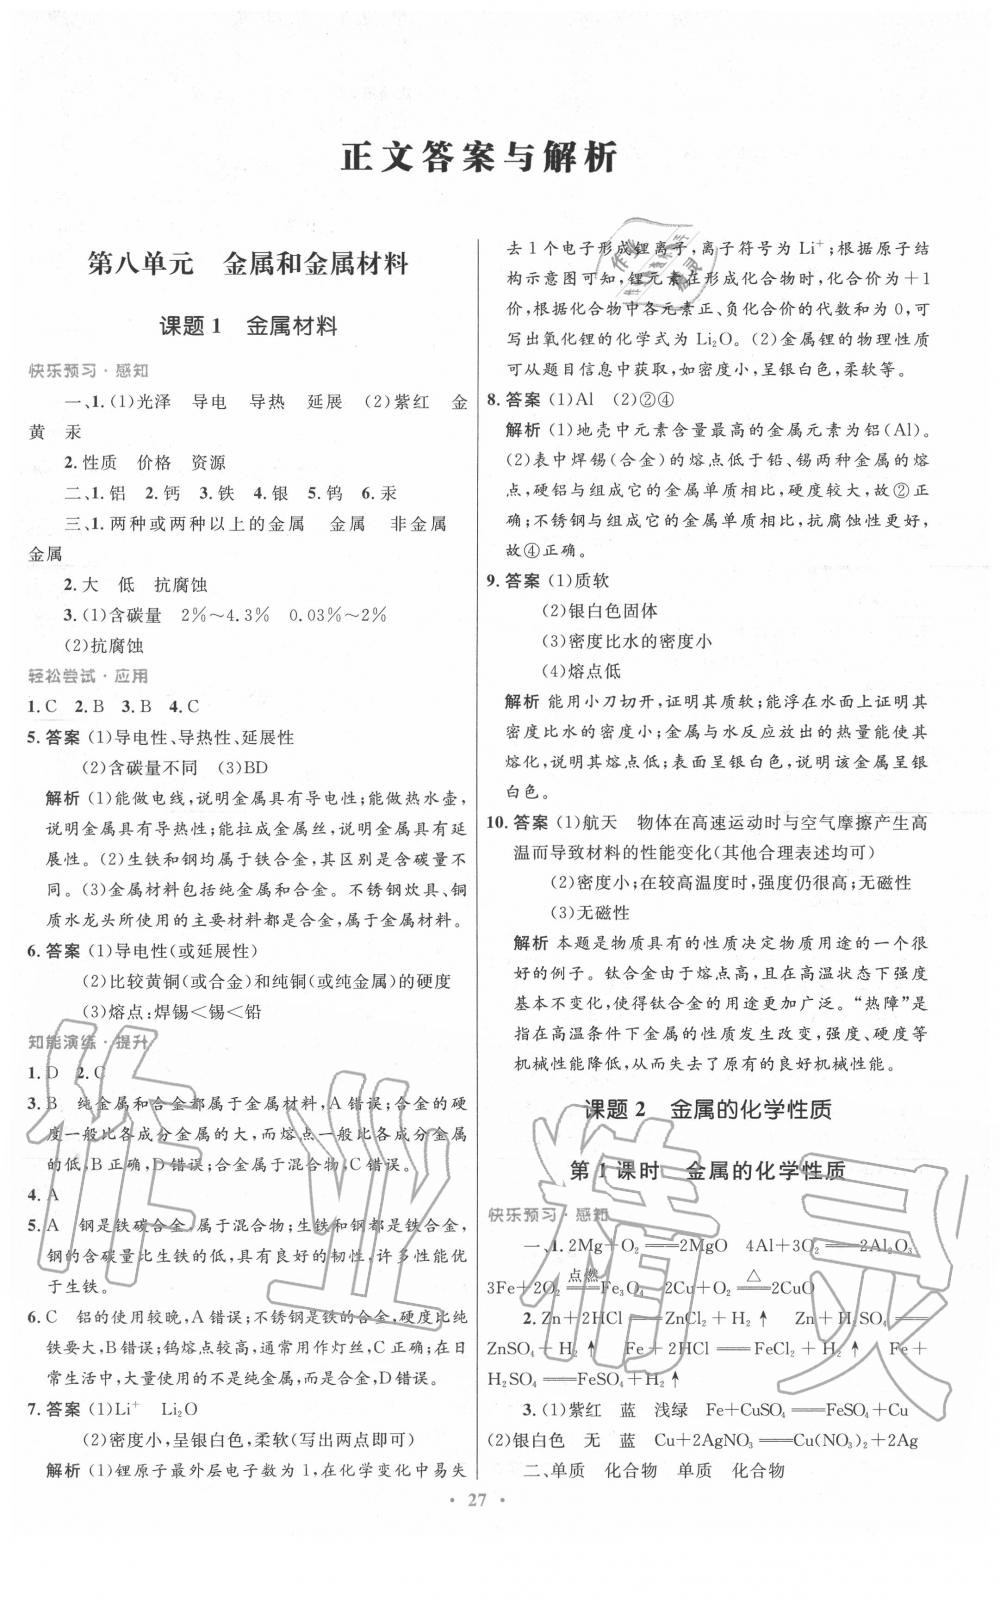 正文答案与解析
第八单元　金属和金属材料
课题1　金属材料
快乐预习·感知
一、1.(1)光泽　导电　导热　延展　(2)紫红　金
黄　汞
2.性质　价格　资源
二、1.铝　2.钙　3.铁　4.银　5.钨　6.汞
三、1.两种或两种以上的金属　金属　非金属
金属
2.大　低　抗腐蚀
3.(1)含碳量　2%～4.3%　0.03%～2%
(2)抗腐蚀
轻松尝试·应用
1.C　2.B　3.B　4.C
5.答案　(1)导电性、导热性、延展性
(2)含碳量不同　(3)BD
解析　(1)能做电线,说明金属具有导电性;能做热水壶,
说明金属具有导热性;能拉成金属丝,说明金属具有延
展性。(2)生铁和钢均属于铁合金,其区别是含碳量不
同。(3)金属材料包括纯金属和合金。不锈钢炊具、铜
质水龙头所使用的主要材料都是合金,属于金属材料。
6.答案　(1)导电性(或延展性)
(2)比较黄铜(或合金)和纯铜(或纯金属)的硬度
(3)熔点:焊锡<锡<铅
知能演练·提升
1.D　2.C
3.B　纯金属和合金都属于金属材料,A错误;合金的硬
度一般比各成分金属的大,而熔点一般比各成分金属
的低,B正确,D错误;合金属于混合物,C错误。
4.A
5.A　钢是铁碳合金,属于混合物;生铁和钢都是铁合金,
钢的含碳量比生铁的低,具有良好的韧性,许多性能优
于生铁。
6.C　铝的使用较晚,A错误;不锈钢是铁的合金,硬度比纯
铁要大,B错误;钨熔点较高,通常用作灯丝,C正确;在日
常生活中,大量使用的不是纯金属而是合金,D错误。
7.答案　(1)Li⁺　Li₂O
(2)密度小,呈银白色,柔软(写出两点即可)
解析　(1)锂原子最外层电子数为1,在化学变化中易失
去1个电子形成锂离子,离子符号为Li⁺;根据原子结
构示意图可知,锂元素在形成化合物时,化合价为+1
价,根据化合物中各元素正、负化合价的代数和为0,可
写出氧化锂的化学式为Li₂O。(2)金属锂的物理性质
可从题目信息中获取,如密度小,呈银白色,柔软等。
8.答案　(1)Al　(2)②④
解析　(1)地壳中元素含量最高的金属元素为铝(Al)。
(2)表中焊锡(合金)的熔点低于铅、锡两种金属的熔
点,硬铝与组成它的金属单质相比,硬度较大,故②正
确;不锈钢与组成它的金属单质相比,抗腐蚀性更好,
故④正确。
9.答案　(1)质软
(2)银白色固体
(3)密度比水的密度小
(4)熔点低
解析　能用小刀切开,证明其质软;能浮在水面上证明其
密度比水的密度小;金属与水反应放出的热量能使其
熔化,说明其熔点低;表面呈银白色,说明该金属呈银
白色。
10.答案　(1)航天　物体在高速运动时与空气摩擦产生高
温而导致材料的性能变化(其他合理表述均可)
(2)密度小;在较高温度时,强度仍很高;无磁性
(3)无磁性
解析　本题是物质具有的性质决定物质用途的一个很
好的例子。钛合金由于熔点高,且在高温状态下强度
基本不变化,使得钛合金的用途更加广泛。“热障”是
指在高温条件下金属的性质发生改变,强度、硬度等
机械性能降低,从而失去了原有的良好机械性能。
课题2　金属的化学性质
第1课时　金属的化学性质
快乐预习·感知
一、1.2Mg+O₂══2MgO　4Al+3O₂══2Al₂O₃
3Fe+2O₂ 点燃══ Fe₃O₄　2Cu+O₂ △══ 2CuO
2.Zn+2HCl══ZnCl₂+H₂↑　Zn+H₂SO₄══
ZnSO₄+H₂↑　Fe+2HCl══FeCl₂+H₂↑　Fe+
H₂SO₄══FeSO₄+H₂↑
3.(1)紫红　蓝　浅绿　Fe+CuSO₄══FeSO₄+Cu
(2)银白色　无　蓝　Cu+2AgNO₃══Cu(NO₃)₂+2Ag
二、单质　化合物　单质　化合物
·27·
作业精灵
作业精灵